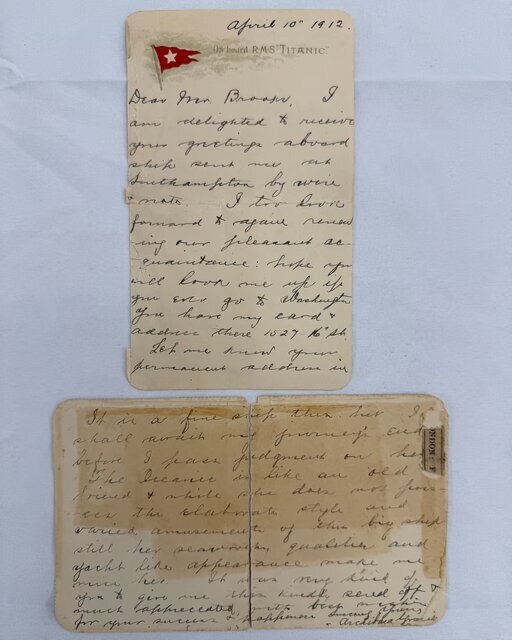 April 10th 1912.
On board R.M.S. "TITANIC"
Dear Mr. Brooks, I
am delighted to receive
your greetings aboard
ship sent me at
Southampton by wire
& note. I too look
forward to again renew
ing our pleasant ac-
quaintance: hope you
will look me up if
you ever go to Washington
You have my card &
address there 1527-16th St.
Let me know your
permanent address in
It is a fine ship this but I
shall await my journey's end
before I pass judgment on her
The Oceanic is like an old
friend & while she does not poss-
ess the elaborate style and
varied amusements of this big ship
still her seaworthy qualities and
yacht like appearance make me
miss her. It was very kind of
you to give me this kindly send off &
much appreciated with best wishes
for your success & happiness
Archibald Gracie